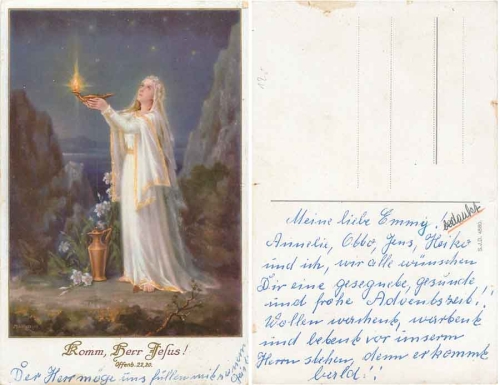 Komm, Herr Jesus!
Offenb. 22,20.
Der Herr möge uns füllen mit s
12.-
Meine liebe Emmy!
Annelie, Obbo, Jens, Heiko
und ich, wir alle wünschen
Dir eine gesegnete, gesunde
und frohe Adventszeit!
Wollen wachend, wartend
und lebend vor unserm
Herrn stehen, denn er kommt
bald!!